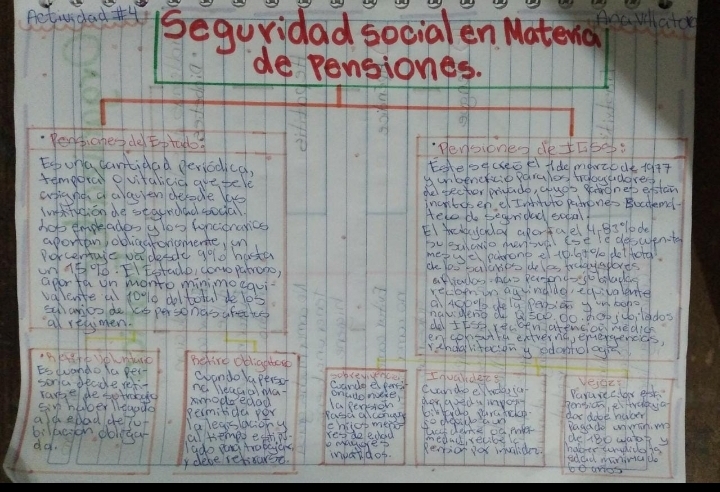 Actividad #4
Seguridad social en Materia
de Pensiones.
• Pensiones del Estado:
Es una cantidad periódica,
temporal o vitalicia que se le
asigna a alguien desde las
Institución de seguridad social.
Los empleados y los funcionarios
aportan obligatoriamente, un
Porcentaje va desde 9% hasta
un 15%. El Estado, como patrono,
aporta un monto mínimo equi-
valente al 10% del total de los
salarios de las personas afectas
al régimen.
• Pensiones de IGSS:
Este se creó el 1 de marzo de 1977
y para los trabajadores
del sector privado, cuyos Patrones están
inscritos en el Instituto
de seguridad social.
El trabajador aporta el 4.83% de
su salario mensual (se le descuenta
mes y el patrono el 10.67% del total
de los salarios de los trabajadores
afiliados. Las personas jubiladas
reciben un equivalente
al 100% de la pensión y un bono
navideño de Q500.00. Los jubilados
del IGSS, reciben atención médica
en consulta externa, emergencias,
rehabilitación y odontología.
• Retiro Voluntario
Es cuando la per-
sona decide reti-
rarse de su trabajo
sin haber llegado
a la edad de ju-
bilación obliga-
da.
Retiro Obligatorio
Cuando la perso-
na llega al ma-
ximo de edad
permitida por
la legislación y
al tiempo estipu-
lado para trabajar
y debe retirarse.
Sobrevivencia
Cuando el pensi-
onado muere,
la pensión
pasa al cónyuge
e hijos meno
res de edad
o mayores
inválidos.
Invalidez:
Cuando el trabaja-
dor queda imposi-
bilitado para
recibe la
Pensión por invalidez.
Vejez:
Para recibir esta
pensión, el trabaja-
dor debe haber
pagado un mínimo
de 180 y
haber cumplido la
edad mínima de
60 años.